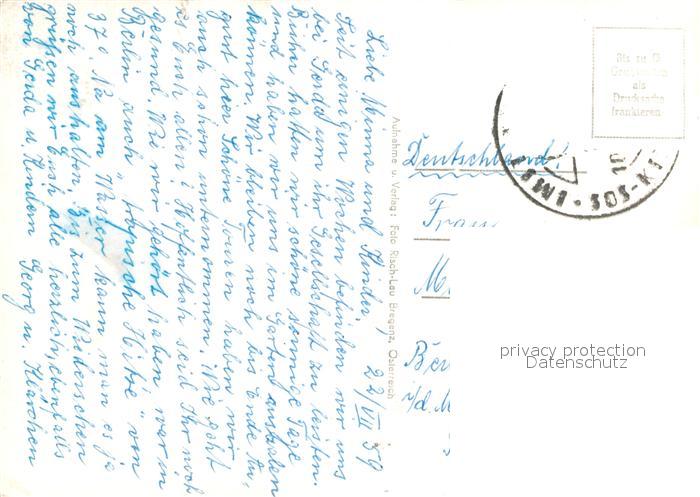 22/VII 59
Liebe Minna und Kinder,
Seit einigen Wochen befinden wir uns
bei Gerda um ihr Gesellschaft zu leisten.
Bisher hatten wir schöne sonnige Tage
und haben wir uns im Garten ausruhen
können. Wir bleiben noch bis Ende Juli,
ganz schöne Touren haben wir
auch schon unternommen. Wie geht
es Euch allen? Hoffentlich seid Ihr noch
gesund. Wie wir gehört haben war in
Berlin auch "tropische Hitze" von
37°. Na am Wasser kann man es ja
noch aushalten. Bis zum Wiedersehen
grüßen wir Euch alle herzlich, ebenfalls
von Gerda u. Kindern Georg u. Klärchen
Aufnahme u. Verlag: Foto Risch-Lau Bregenz, Österreich
Bis zu 5
Grußworten
als
Drucksache
frankieren
EMS · SOS-KI
Deutschland!
Frau
M
Ber
i/d. M
privacy protection
Datenschutz